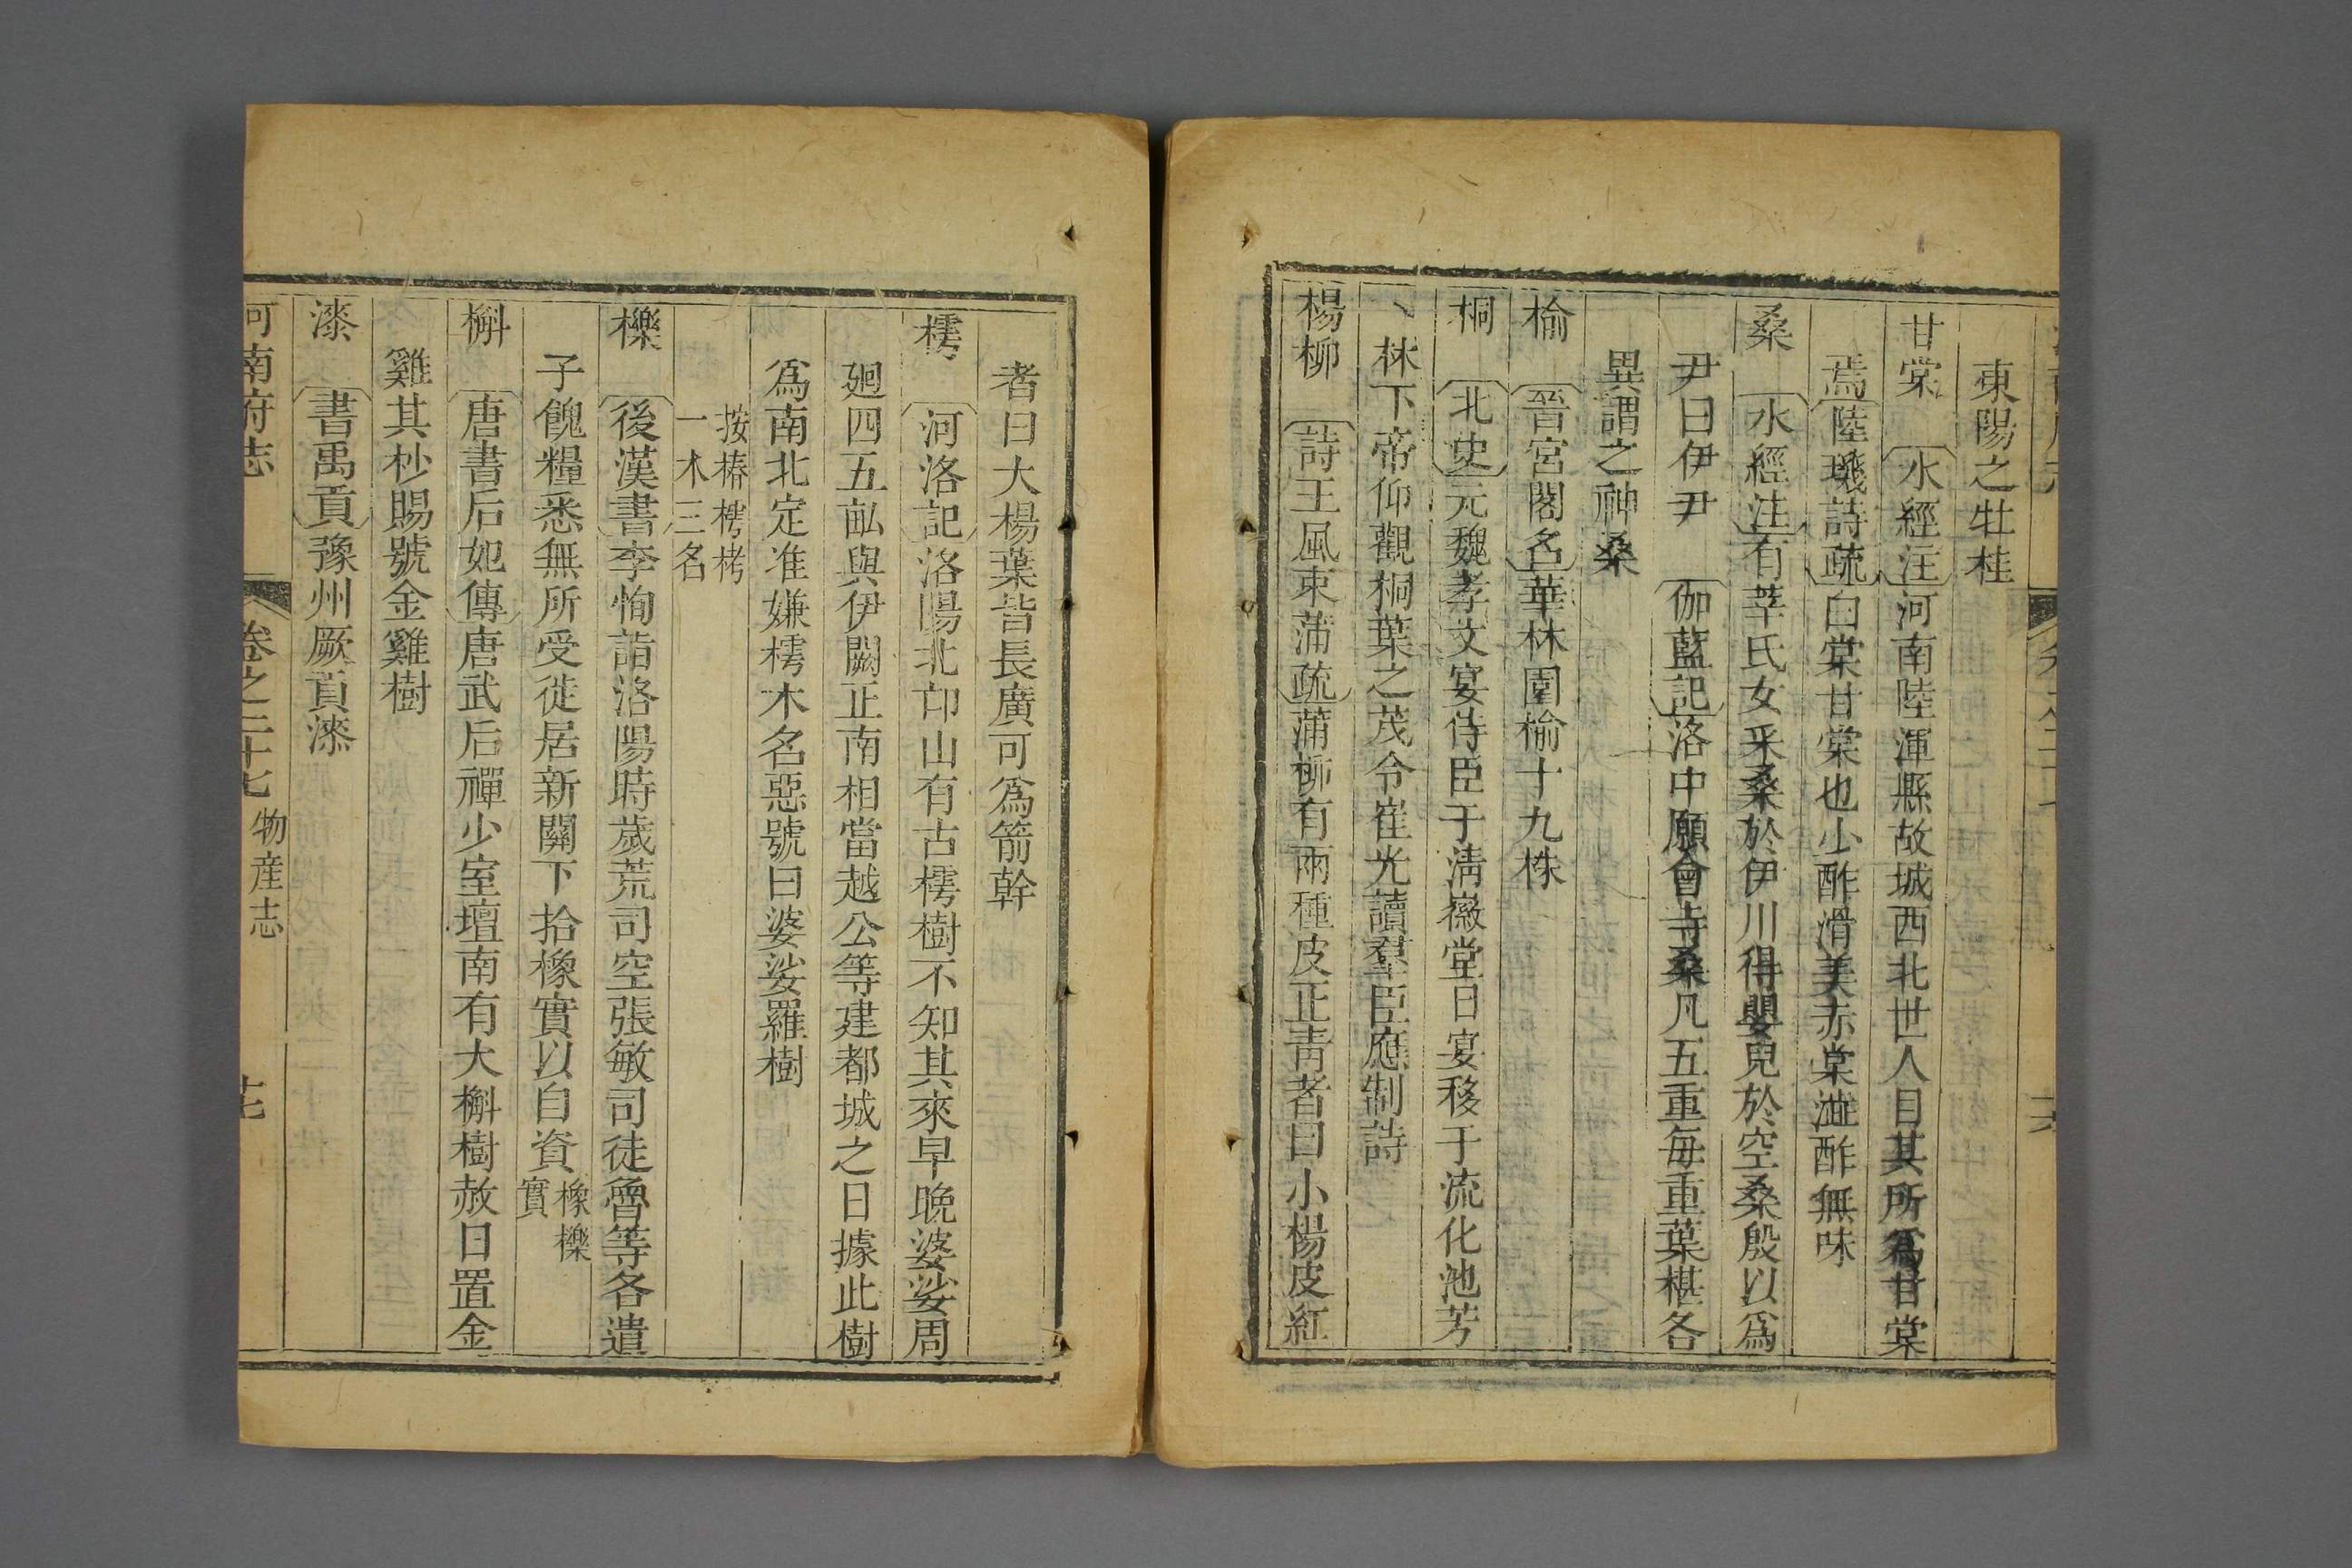 東陽之牡桂
甘棠 水經注河南陸渾縣故城西北世人目其所爲甘棠
焉陸璣詩疏白棠甘棠也少酢滑美赤棠澁酢無味
桑 水經注有莘氏女采桑於伊川得嬰兒於空桑殷以爲
尹曰伊尹 伽藍記洛中願會寺桑凡五重每重葉椹各
異謂之神桑
榆 晉宮閣名華林園榆十九株
桐 北史元魏孝文宴侍臣于淸徽堂日宴移于流化池芳
林下帝仰觀桐葉之茂令崔光讀羣臣應制詩
楊柳 詩王風束蒲疏蒲柳有兩種皮正靑者曰小楊皮紅
者曰大楊葉皆長廣可爲箭幹
樗 河洛記洛陽北邙山有古樗樹不知其來早晚婆娑周
廻四五畝與伊闕正南相當越公等建都城之日據此樹
爲南北定准嫌樗木名惡號曰婆娑羅樹
按椿樗栲
一木三名
櫟 後漢書李恂詣洛陽時歲荒司空張敏司徒魯等各遣
子餽糧悉無所受徙居新關下拾橡實以自資橡櫟
實
槲 唐書后妃傳唐武后禪少室壇南有大槲樹赦日置金
雞其杪賜號金雞樹
漆 書禹貢豫州厥貢漆
河南府志 卷之二十七 物産志